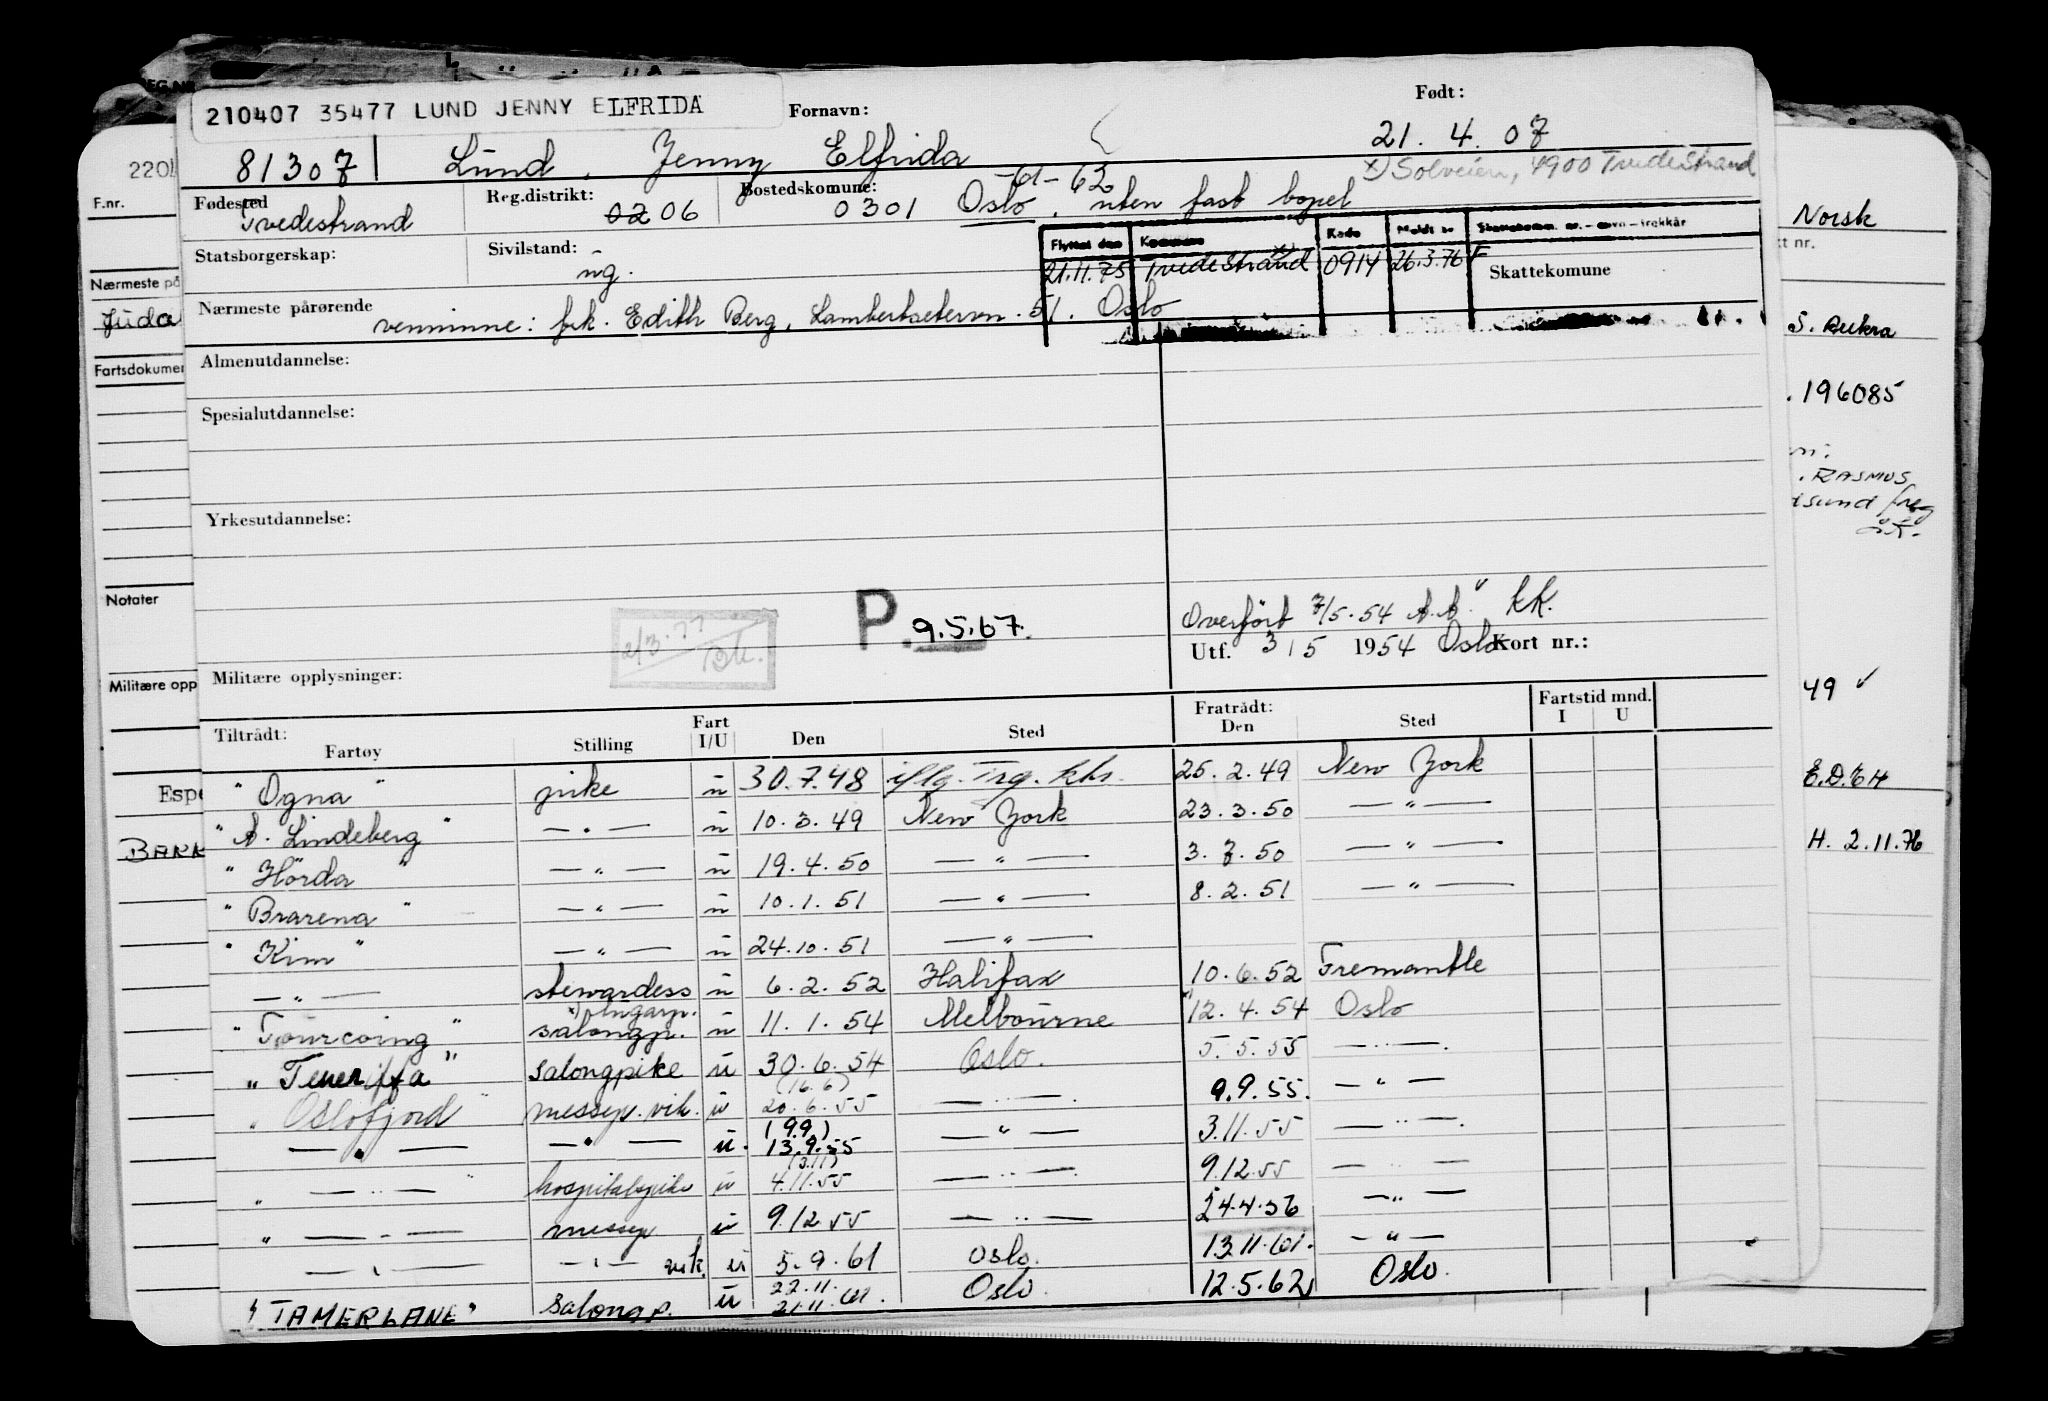 210407 35477 LUND JENNY ELFRIDA
Fornavn:
Født:
81307 Lund, Jenny Elfrida
21. 4. 07
x) Solveien, 4900 Tvedestrand
-61-62
Fødested
Tvedestrand
Reg.distrikt:
02 06
Bostedskomune:
0301 Oslo, uten fast bopel
Statsborgerskap:
Sivilstand:
ug.
Flyttet den Kommune Kode Meldt
21.11.75 Tvedestrand x) 0914 26.3.76 F
Skattekomune
Nærmeste pårørende
venninne: frk. Edith Berg, Lambertsetervn. 51. Oslo
Almenutdannelse:
Spesialutdannelse:
Yrkesutdannelse:
2/3.77
P. 9.5.67.
Overført 7/5-54 A.A. kk.
Utf. 3/5 1954 Oslo Kort nr.:
Militære opplysninger:
Tiltrådt:
Fartøy Stilling Fart I/U Den Sted Fratrådt: Den Sted Fartstid mnd. I U
"Ogna" pike u 30.7.48 iflg. Trg. kbr. 25.2.49 New York
"A. Lindeberg" — " — u 10.3.49 New York 23.3.50 — " —
"Hörda" — " — u 19.4.50 — " — 3.7.50 — " —
"Brarena" — " — u 10.1.51 — " — 8.2.51 — " —
"Kim" — " — u 24.10.51 — " —
— " — stewardess u 6.2.52 Halifax 10.6.52 Fremantle
x) lugarp.
"Tourcoing" salongp. u 11.1.54 Melbourne x) 12.4.54 Oslo
"Teneriffa" salongpike u 30.6.54 Oslo. 5.5.55 — " —.
(16.6)
"Oslofjord" messep. vik. u 20.6.55 — " —. 9.9.55. — " —
(9.9)
— " — — " — u. 13.9.55 — " — 3.11.55 — " —.
(3.11)
" — " — " hospitalspike u 4.11.55 — " —. 9.12.55 — " —
" — " — messep u 9.12.55 — " — 24.4.56 — " —
— " — — " — vik. u 5.9.61 Oslo. 13.11.61. — " —
22.11.
"TAMERLANE" salongp. u 21.11.61. Oslo. 12.5.62 Oslo.
2201
F.nr.
Nærmeste på
Juda
Fartsdokumen
Notater
Militære opp
Espe
BARK
Norsk
t nr.
S. Aukra
. 196085
. RASMUS
49 ✓
H. 2.11.76